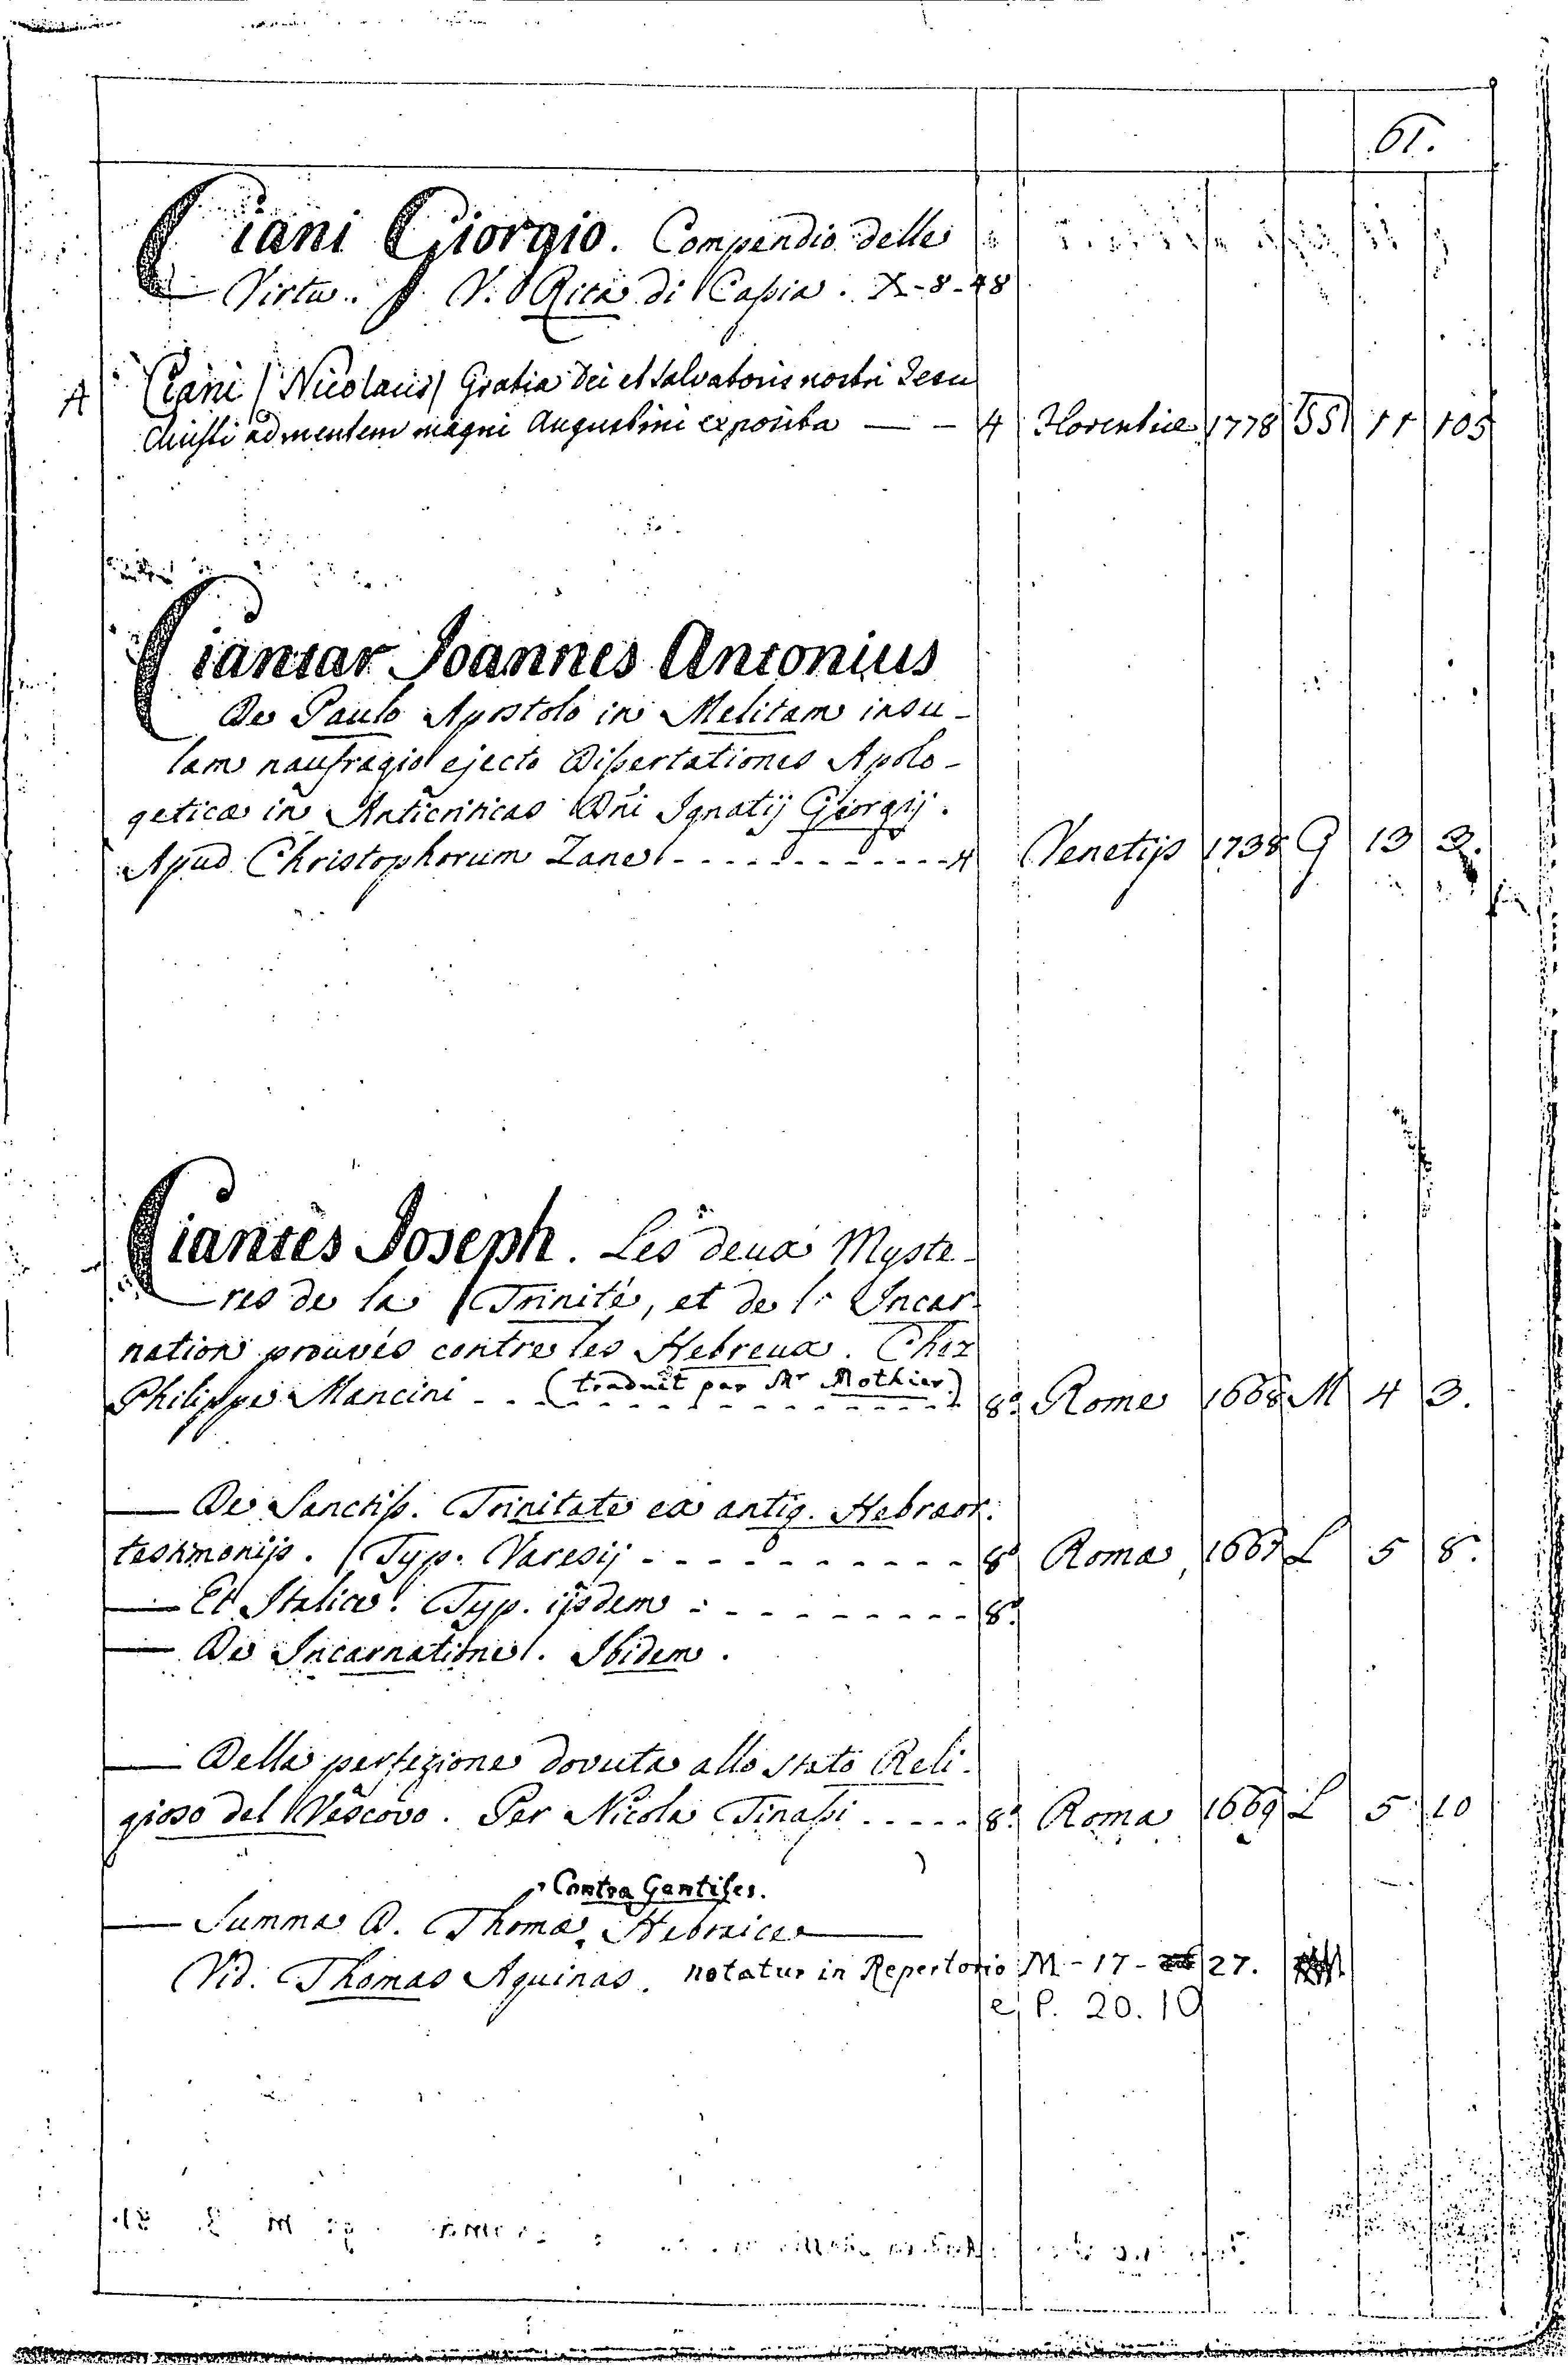 61.
Ciani Giorgio. Compendio delle
Virtu. V. Rita di Caßia. X-8-48
A Ciani (Nicolaus) Gratia Dei et Salvatoris nostri Jesu
Christi ad mentem magni Augustini exposita — - 4 Florentiæ 1778 SS 11 105
Ciantar Joannes Antonius
De Paulo Apostolo in Melitam insu-
lam naufragio ejecto Dißertationes Apolo-
geticæ in Anticriticas Dni Ignatij Georgij.
Apud Christophorum Zane - - - - - - - - - - - - 4 Venetijs 1738 G 13 2.
Ciantes Joseph. Les deux Myste-
res de la Trinité, et de l' Incar-
nation prouvés contre les Hebreux. Chez
Philippe Mancini (traduit par Mr Mothier) 8° Rome 1668 M 4 3.
— De Sanctiß. Trinitate ex antiq. Hebræor.
testimonijs. Typ. Varesij - - - - - - - - - - - 8° Romæ 1667 L 5 8.
— Et Italice. Typ. ijsdem - - - - - - - - - - 8°
— De Incarnatione. Ibidem.
— Della perfezione dovuta allo stato Reli-
gioso del Vescovo. Per Nicola Tinaßi . . . . . 8° Roma 1669 L 5 10
Contra Gentiles.
— Summa D. Thomæ Hebraice —
Vid. Thomas Aquinas. notatur in Repertorio M - 17 - 27.
e P. 20. 10